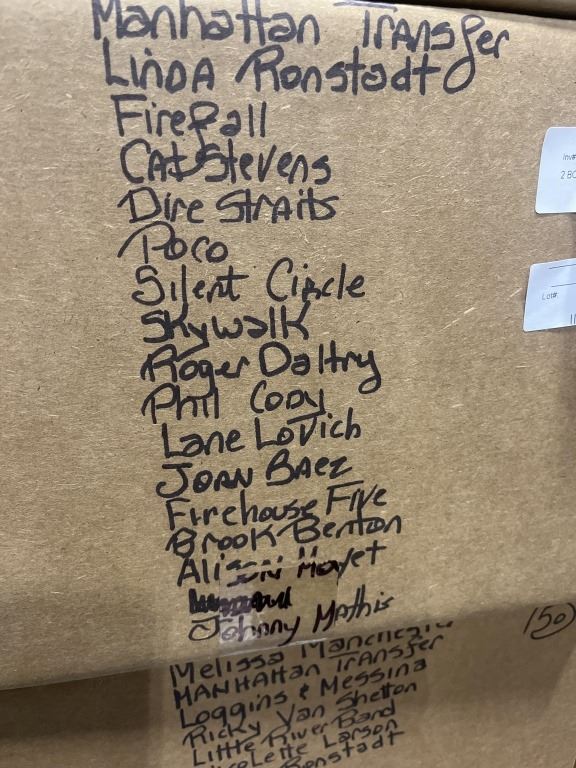 Manhattan Transfer
Linda Ronstadt
Firefall
Cat Stevens
Dire Straits
Poco
Silent Circle
Skywalk
Roger Daltry
Phil Cody
Lane Lovich
Joan Baez
Firehouse Five
Brook Benton
Alison Moyet
Johnny Mathis
Melissa Manchester
Manhattan Transfer
Loggins & Messina
Ricky Van Shelton
Little River Band
Larson
Ronstadt
150
Inv#
2 BO
Lot#: